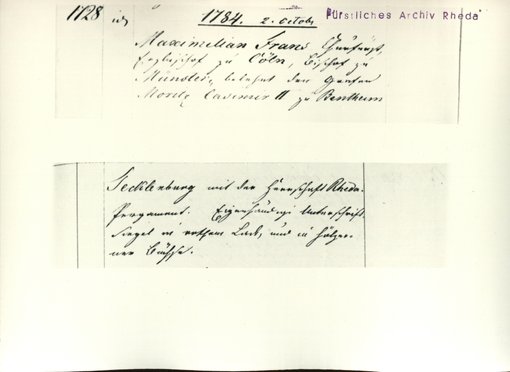 1728
1784. 2. Octobr
Fürstliches Archiv Rheda
Maximilian Franz Churfürst,
Erzbischof zu Cöln, Bischof zu
Münster, belehnt den Grafen
Moritz Casimir II zu Bentheim
Tecklenburg mit der Herrschaft Rheda.
Pergament. Eigenhändige Unterschrift.
Siegel in rothem Lack, und in hölzer-
ner Büchse.